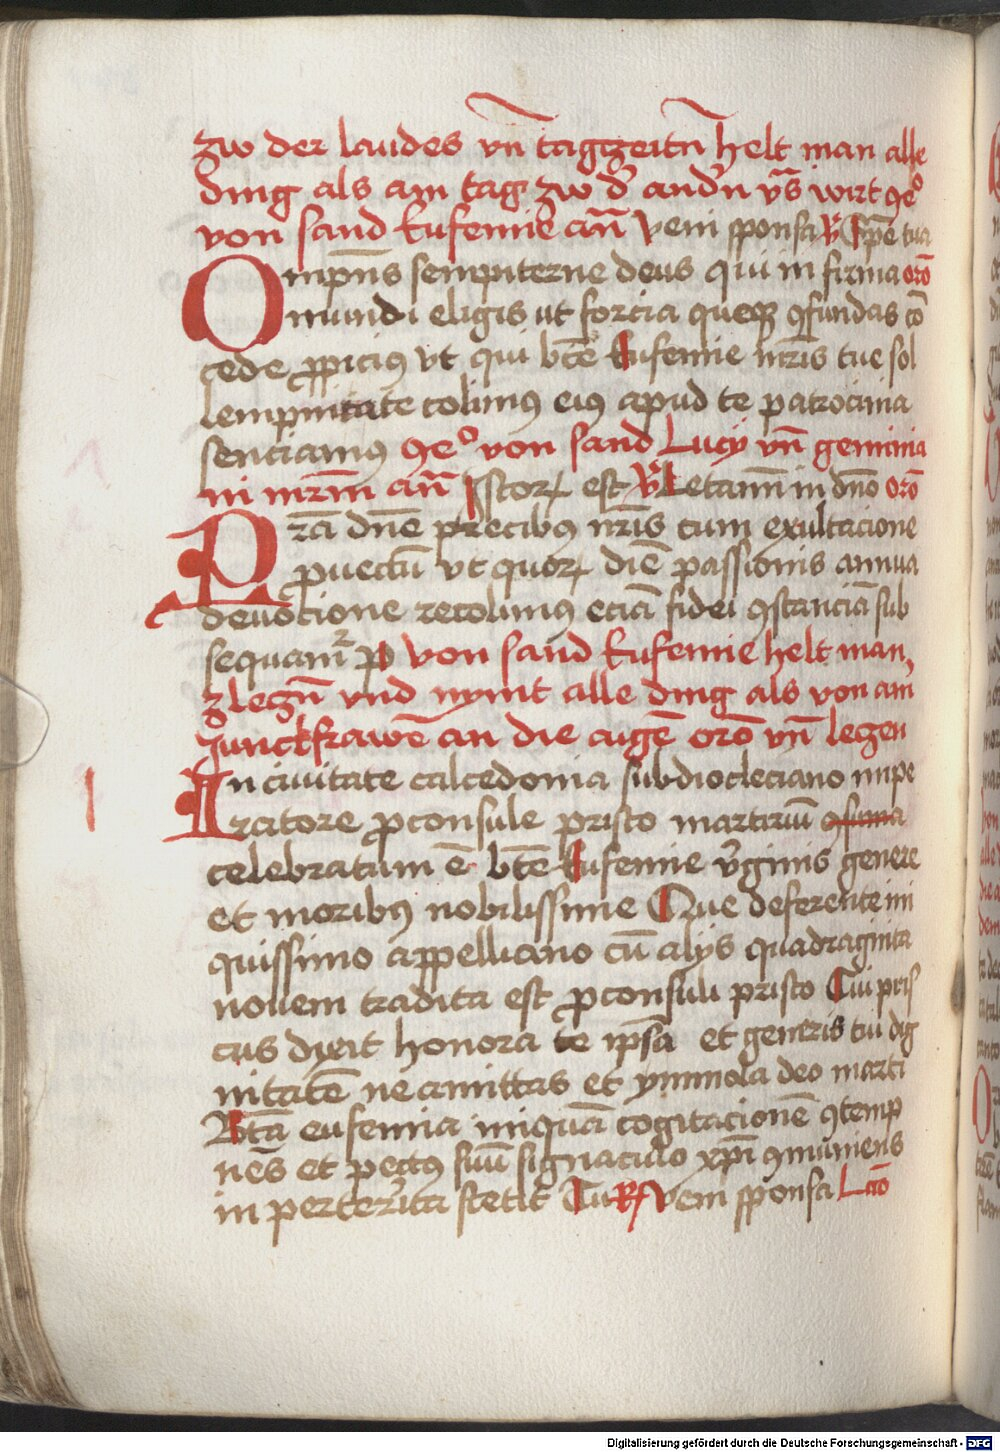 zw der laudes vn̄ tagzeitn̄ helt man alle
ding als am tag zw d' and'n vs̄ wirt 9eͦ
von sand Eufemie an̄ Veni sponsa v̓ Spē tua
Ompn̄s sempiterne deus qui infirma orō
mundi eligis ut forcia queqꝫ ꝯfundas cō
cede ꝓpicius vt qui btē Eufemie mr̄is tue sol
lempnitate colimꝰ eiꝰ apud te patrocinia
senciamꝰ 9eͦ von sand Lucy vn̄ geminia
ni mr̄m an̄ Istoꝝ est v̓ Letamī in dn̄o orō
Prā dn̄e p̄recibꝰ nr̄is cum exultacione
ꝓuectū vt quoꝝ diē passionis annua
deuocione recolimꝰ eciā fidei ꝯstanciā sub
sequam̄ ꝑ von sand Eufemie helt man
3 legn̄ vnd nymt alle ding als von am̄
Junckfrawē an die aigē orō vn̄ legen
In ciuitate calcedonia subdiocleciano impe
ratore ꝓconsule prisco martiriū
celebratum ē btē Eufemie v̓ginis genere
et moribꝰ nobilissime Que deferente ini
quissimo appelliano cū alijs quadraginta
nouem tradita est ꝓconsuli prisco Cui pris
cus dixit honora te ip̄sā et gen̄ris tui dig
nitatē ne amittas et ymmola deo marti
Btā eufemia iniquā cogitacionē ꝯtemp
nēs et pectꝰ suū signaculo xp̄i ꝯmuniens
in perterrita stetit Tu R̸ Veni sponsa Lcō
Digitalisierung gefördert durch die Deutsche Forschungsgemeinschaft - DFG